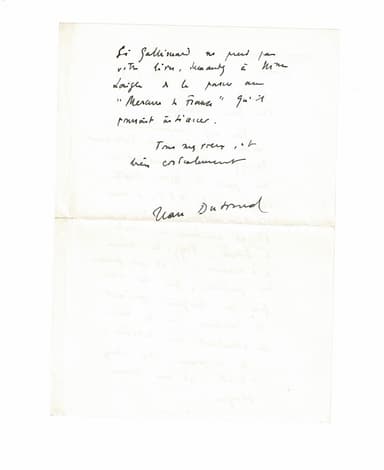 Si Gallimard ne prend pas
votre livre, demandez à Mme
de le passer au
"Mercure de France" qu'il
pourrait intéresser.
Tous mes vœux, et
bien cordialement
Jean Dutourd